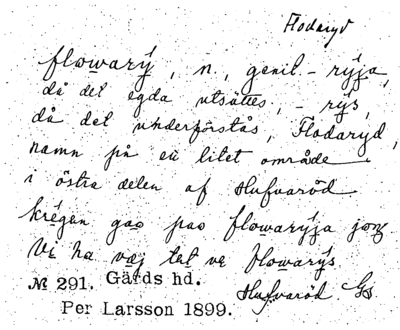 Flodaryd
flowarÿ, n., genit. -rÿja,
då det egda utsättes, -rÿs,
då det underförstås, Flodaryd,
namn på ett litet område
i östra delen af Hufvaröd
krégan gao pao flowarÿja jorz
Vi ha væj tet ve flowarÿs.
№ 291. Gärds hd.
Hufvaröd Gs
Per Larsson 1899.